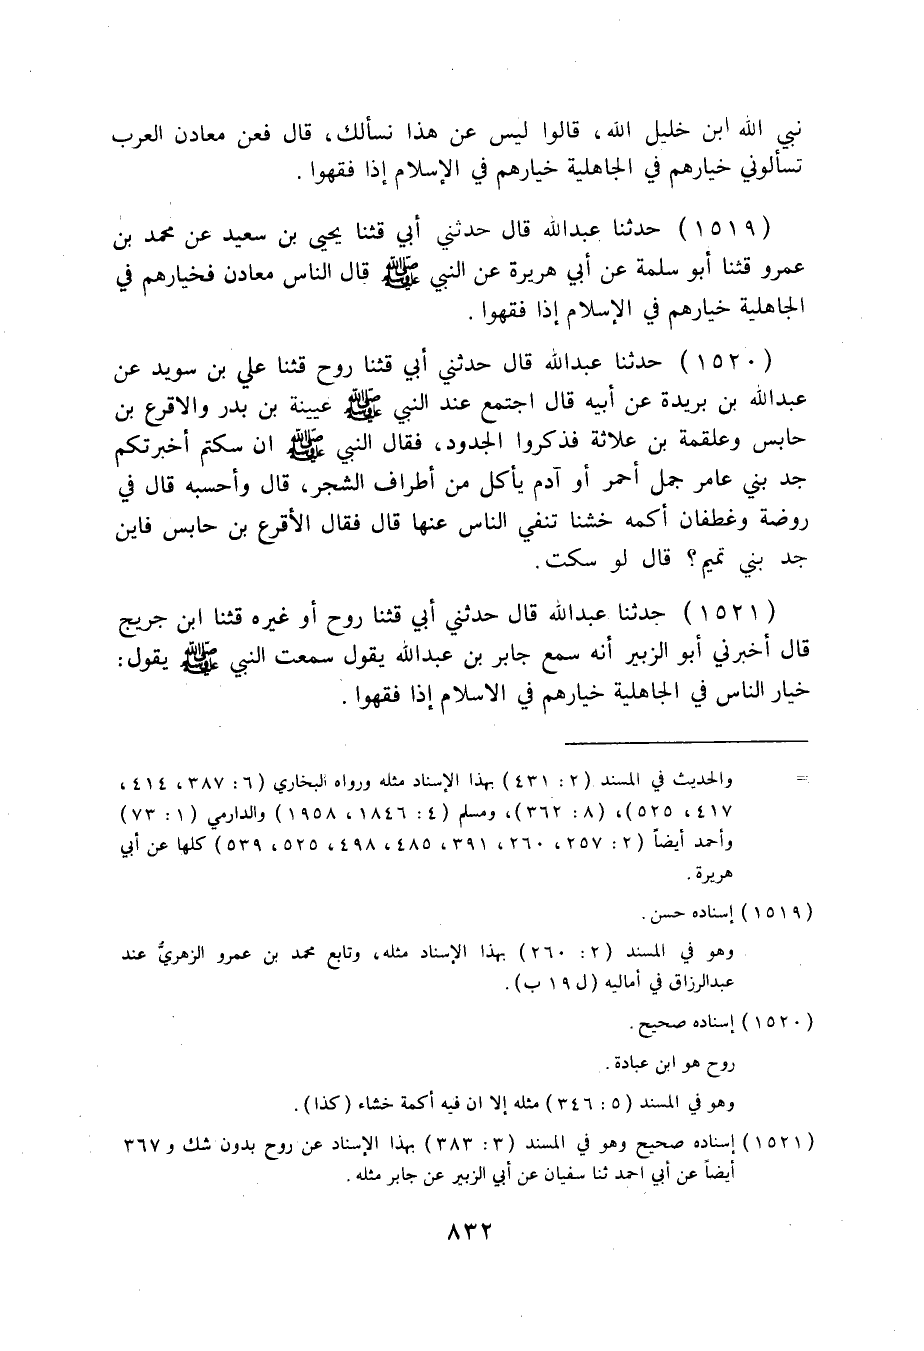 نبي الله ابن خليل الله، قالوا ليس عن هذا نسألك، قال فعن معادن العرب
تسألوني خيارهم في الجاهلية خيارهم في الإسلام إذا فقهوا .
(١٥١٩) حدثنا عبدالله قال حدثني أبي قثنا يحيى بن سعيد عن محمد بن
عمرو قثنا أبو سلمة عن أبي هريرة عن النبي ﷺ قال الناس معادن فخيارهم في
الجاهلية خيارهم في الإسلام إذا فقهوا .
(١٥٢٠) حدثنا عبدالله قال حدثني أبي قثنا روح قثنا علي بن سويد عن
عبدالله بن بريدة عن أبيه قال اجتمع عند النبي ﷺ عيينة بن بدر والاقرع بن
حابس وعلقمة بن علاثة فذكروا الجدود، فقال النبي ﷺ ان سكتم أخبرتكم
جد بني عامر جمل أحمر أو آدم يأكل من أطراف الشجر، قال وأحسبه قال في
روضة وغطفان أكمه خشنا تنفي الناس عنها قال فقال الأقرع بن حابس فاين
جد بني تميم؟ قال لو سكت.
(١٥٢١) حدثنا عبدالله قال حدثني أبي قثنا روح أو غيره قثنا ابن جريج
قال أخبرني أبو الزبير أنه سمع جابر بن عبدالله يقول سمعت النبي ﷺ يقول:
خيار الناس في الجاهلية خيارهم في الاسلام إذا فقهوا .
= والحديث في المسند (٢: ٤٣١) بهذا الإسناد مثله ورواه البخاري (٦: ٣٨٧، ٤١٤،
٤١٧، ٥٢٥)، (٨: ٣٦٢)، ومسلم (٤: ١٨٤٦، ١٩٥٨) والدارمي (١: ٧٣)
وأحمد أيضاً (٢: ٢٥٧، ٢٦٠، ٣٩١، ٤٨٥، ٤٩٨، ٥٢٥، ٥٣٩) كلها عن أبي
هريرة .
(١٥١٩) إسناده حسن .
وهو في المسند (٢: ٢٦٠) بهذا الإسناد مثله، وتابع محمد بن عمرو الزهريُّ عند
عبدالرزاق في أماليه (ل ١٩ ب).
(١٥٢٠) إسناده صحيح .
روح هو ابن عبادة .
وهو في المسند (٥: ٣٤٦) مثله إلا ان فيه أكمة خشاء (كذا).
(١٥٢١) إسناده صحيح وهو في المسند (٣: ٣٨٣) بهذا الإسناد عن روح بدون شك و ٣٦٧
أيضاً عن أبي احمد ثنا سفيان عن أبي الزبير عن جابر مثله .
٨٣٢